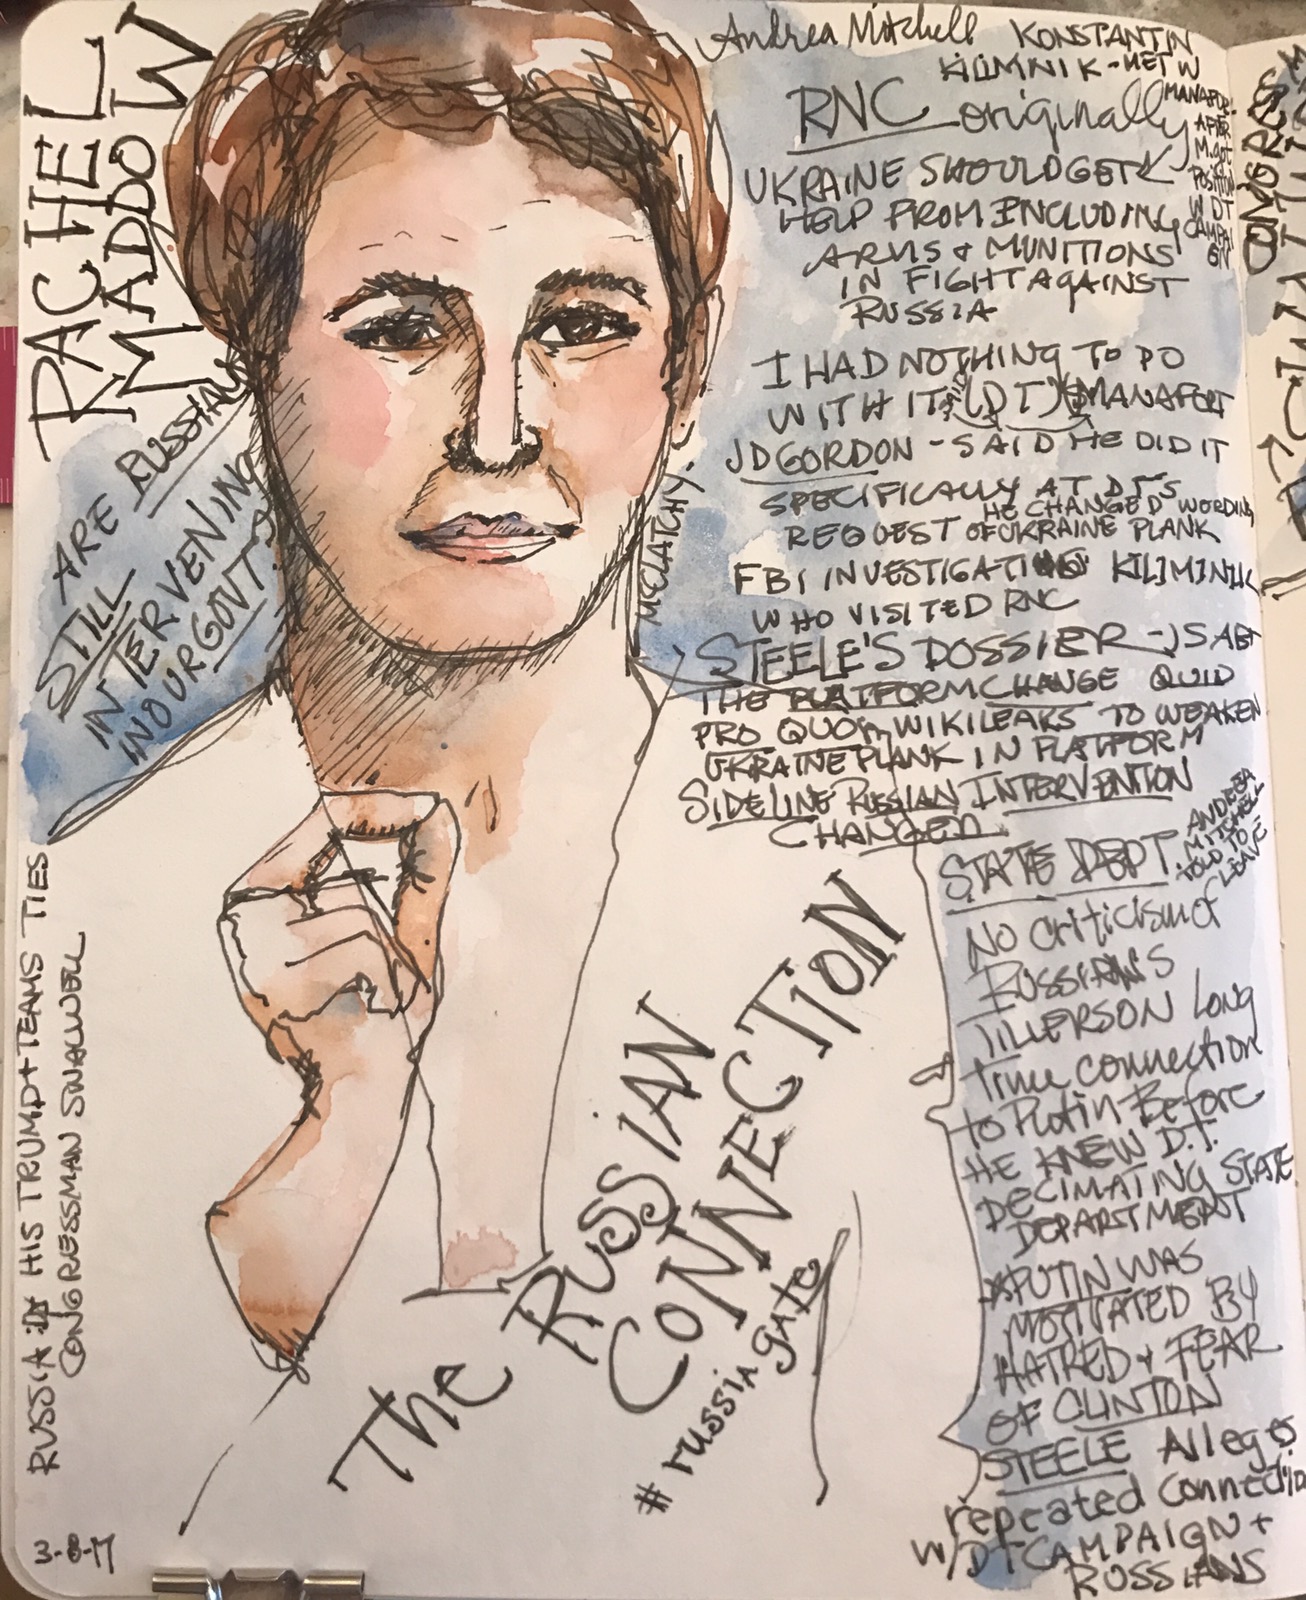 RACHEL
MADDOW
ARE RUSSIANS
STILL
INTERVENING
IN OUR GOVT.
RUSSIA: HIS TRUMP + TEAMS TIES
CONGRESSMAN SWALWELL
3-8-17
Andrea Mitchell
KONSTANTIN
KILIMNIK - MET W
MANAFORT
AFTER
M. got
POSITION
W DT
CAMPAI
GN
RNC originally
UKRAINE SHOULD GET
HELP FROM INCLUDING
ARMS + MUNITIONS
IN FIGHT AGAINST
RUSSIA
I HAD NOTHING TO DO
WITH IT (DT) MANAFORT
JD GORDON - SAID HE DID IT
SPECIFICALLY AT DT'S
HE CHANGED WORDING
REQUEST OF UKRAINE PLANK
MCCLATCHY.
FBI INVESTIGATING KILIMINIK
WHO VISITED RNC
STEELE'S DOSSIER - IS ABT
THE PLATFORM CHANGE QUID
PRO QUO WIKILEAKS TO WEAKEN
UKRAINE PLANK IN PLATFORM
SIDELINE RUSSIAN INTERVENTION
CHANGED
STATE DEPT.
ANDREA
MITCHELL
TOLD TO
LEAVE
No criticism of
RUSSIANS
TILLERSON Long
time connection
to Putin Before
HE KNEW D.T.
DECIMATING STATE
DEPARTMENT
PUTIN WAS
MOTIVATED BY
HATRED + FEAR
OF CLINTON
STEELE Alleges
repeated connection
W/DT CAMPAIGN +
RUSSIANS
The RUSSIAN
CONNECTION
# russia gate